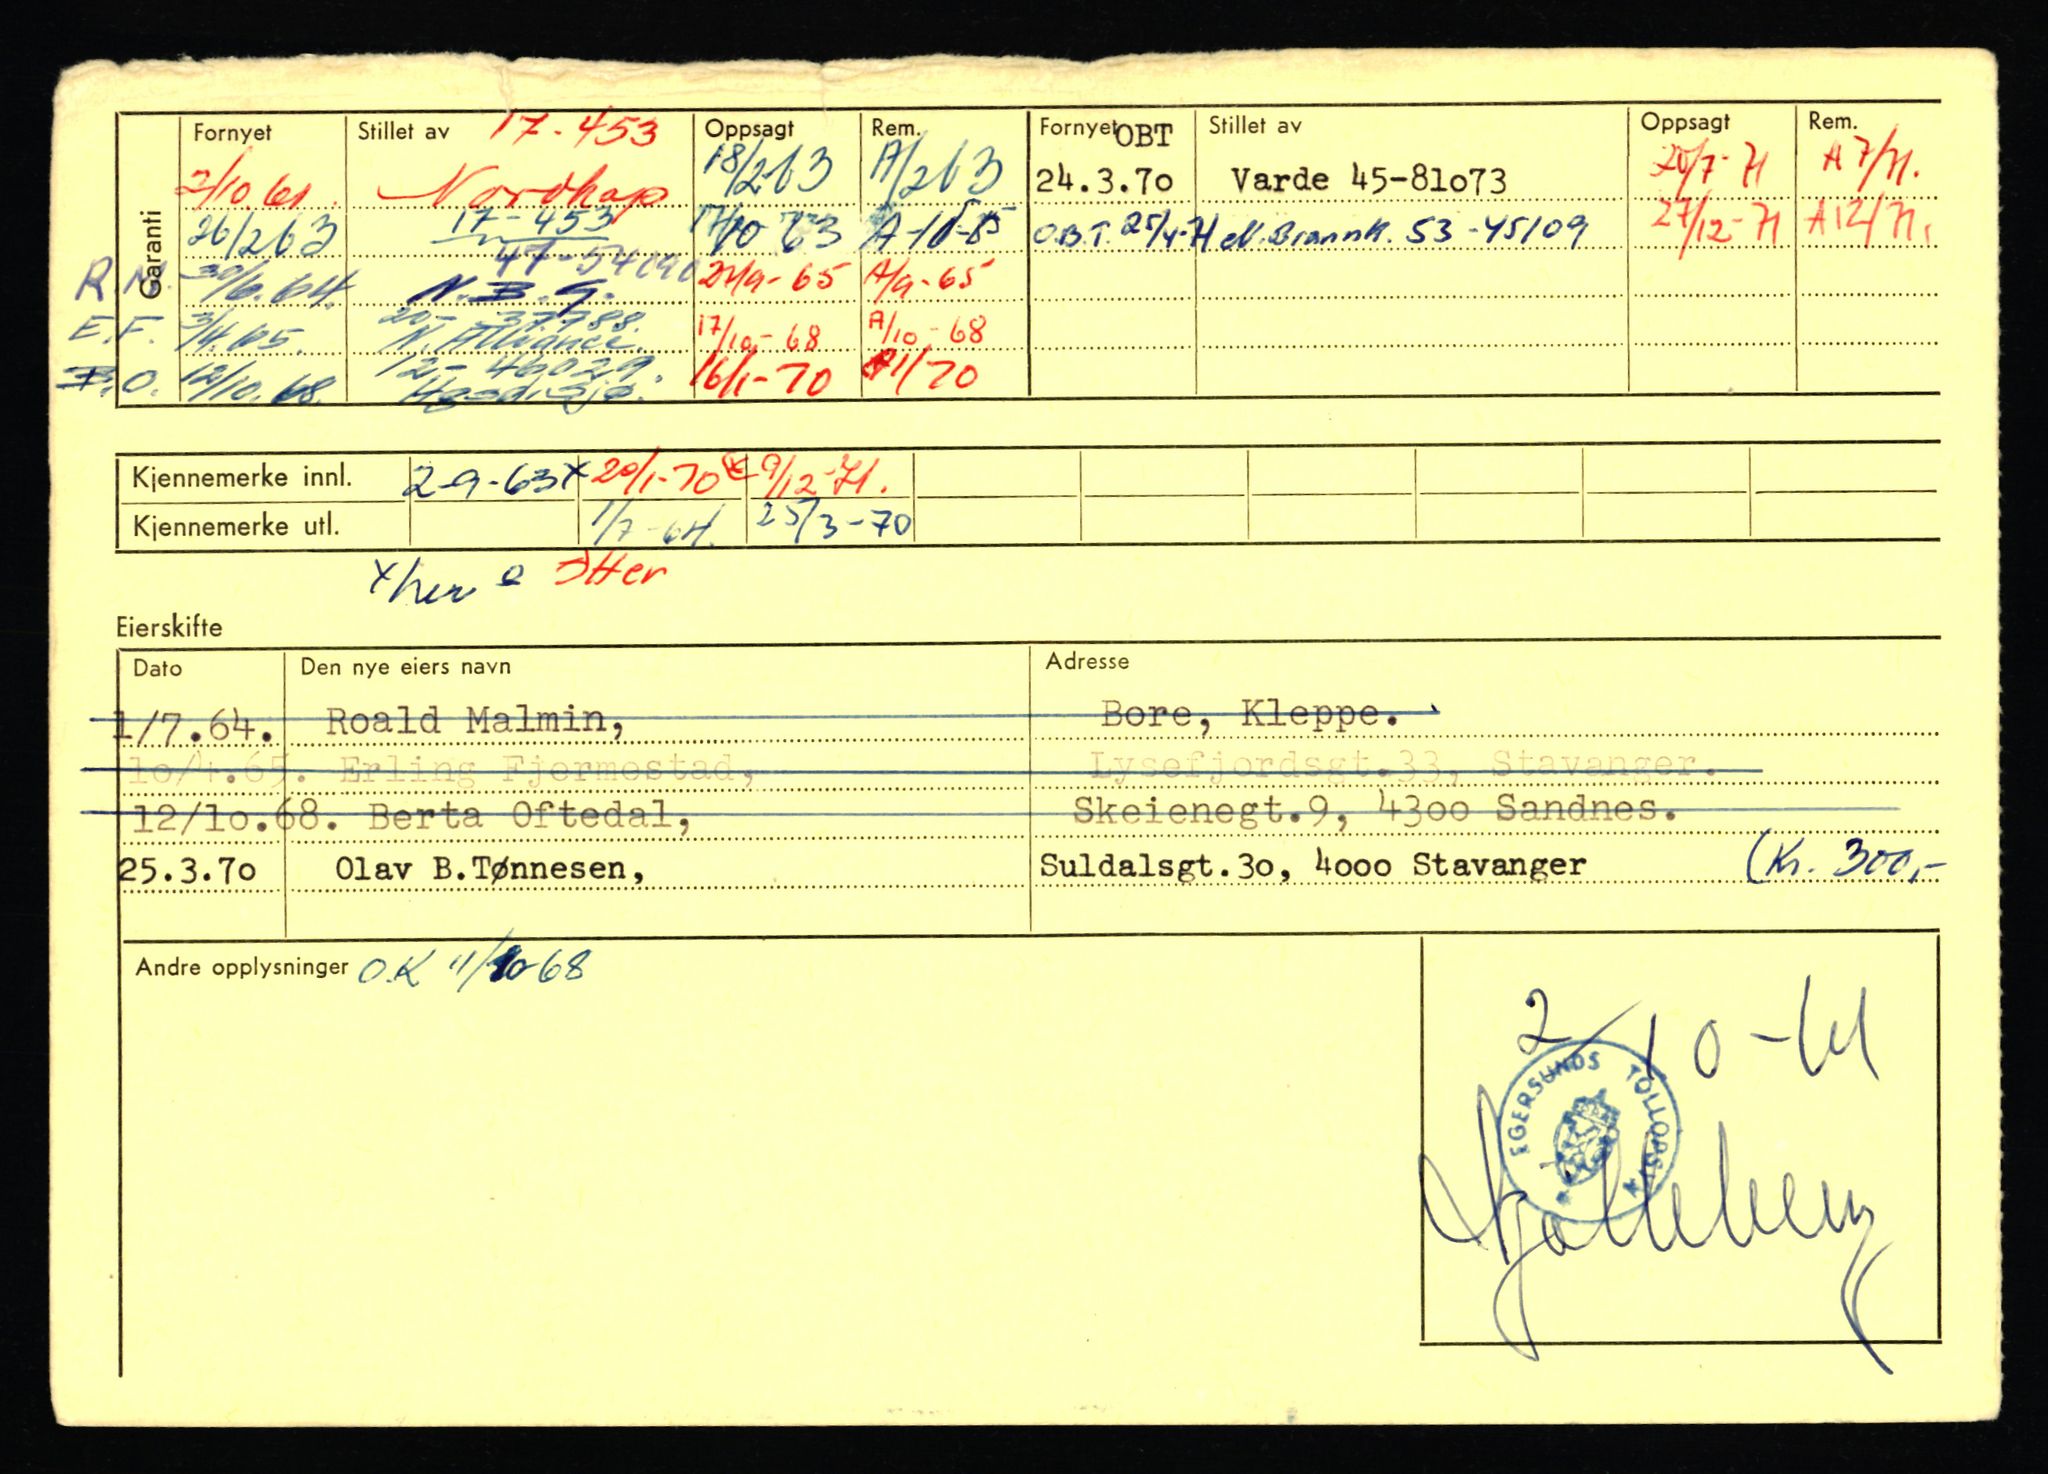 Garanti
Fornyet Stillet av 17-453 Oppsagt Rem. Fornyet OBT Stillet av Oppsagt Rem.
2/10 61. Nordkap 18/2 63 A/2 63 24.3.70 Varde 45-81073 20/7-71 A 7/71.
26/2 63 17-453 17/10 63 O.B.T. 25/4-71 N. Brannk. 53-45109 27/12-71 A 12/71.
R.M. 30/6.64. N.B.G. 27/9-65 A/9-65
E.F. 3/4.65. 20-37788. N. Alliance. 17/10-68 A/10-68
B.O. 12/10.68. 12-46029. 16/1-70 A1/70
Kjennemerke innl. 2-9-63x 20/1-70 9/12-71.
Kjennemerke utl. 1/7-64. 25/3-70
x her Her
Eierskifte
Dato Den nye eiers navn Adresse
1/7.64. Roald Malmin, Bore, Kleppe.
10/4.65. Erling Fjermestad, Lysefjordsgt.33, Stavanger.
12/10.68. Berta Oftedal, Skeienegt.9, 4300 Sandnes.
25.3.70 Olav B.Tønnesen, Suldalsgt.30, 4000 Stavanger (Kr. 300,-
Andre opplysninger O.K 11/10-68
2/10-61
EGERSUNDS TOLLOPPSYN